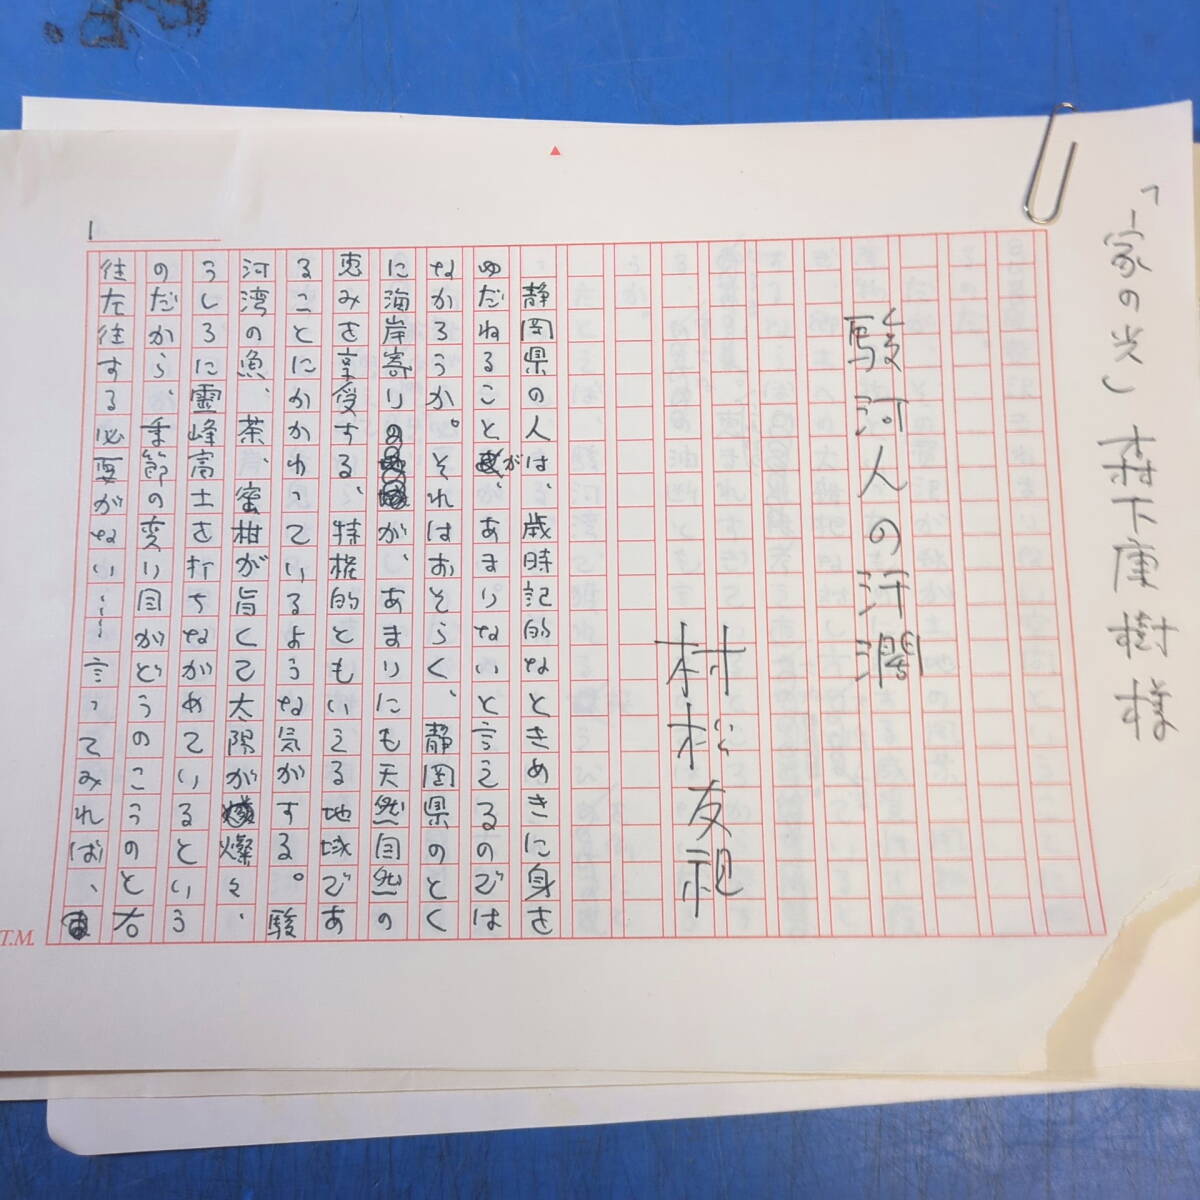 「家の光」森下庫樹様
駿河人の汗濶
村松友視
静岡県の人は、歳時記的なときめきに身を
ゆだねることが、あまりないと言えるのでは
なかろうか。それはおそらく、静岡県のとく
に海岸寄りが、あまりにも天然自然の
恵みを享受する、特権的ともいえる地域であ
ることにかかわっているような気がする。駿
河湾の魚、茶、蜜柑が旨くて太陽が燦々、
うしろに霊峰富士を打ちながめているという
のだから、季節の変り目がどうのこうのと右
往左往する必要がない……言ってみれば、
1
T.M.